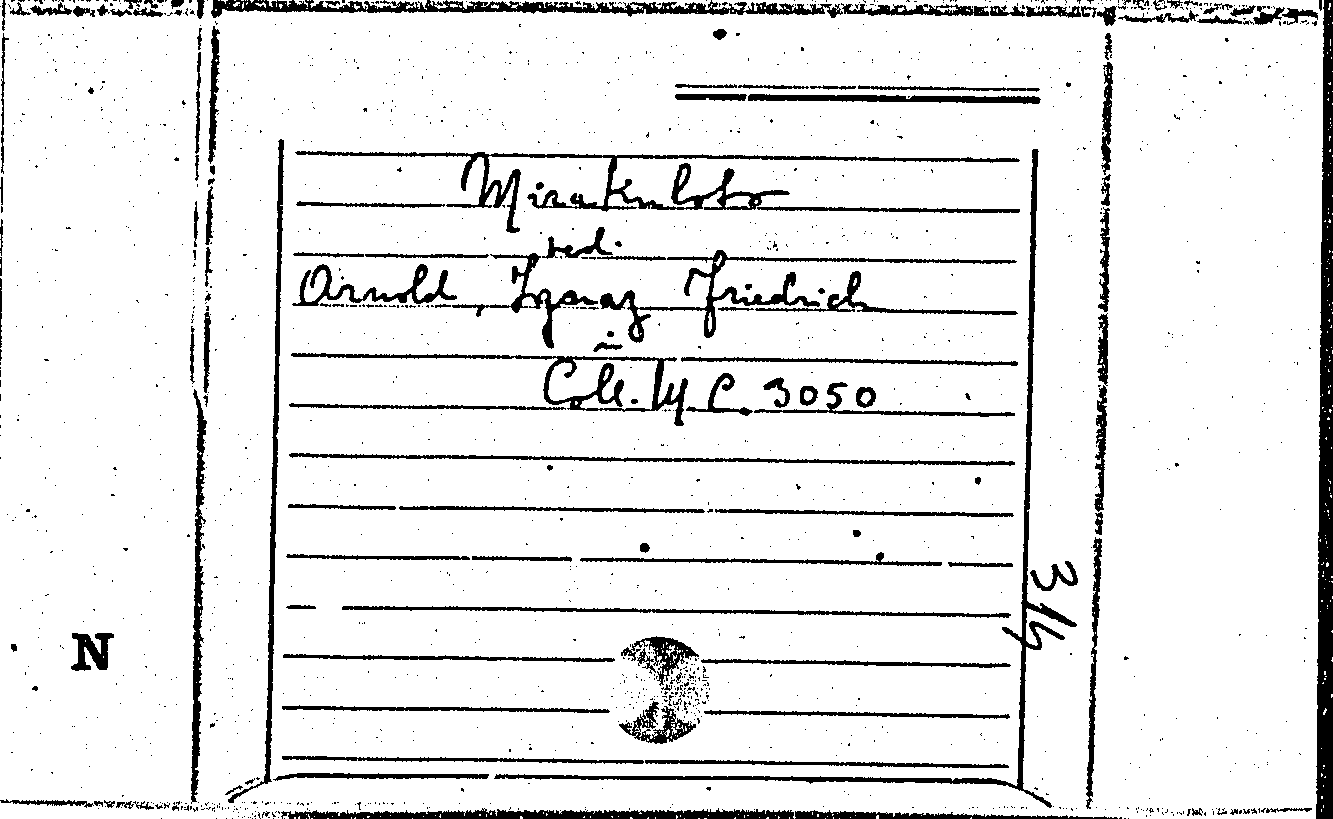 Mirakuloso
red.
Arnold, Ignaz Friedrich
in
Coll. M C. 3050
314
N